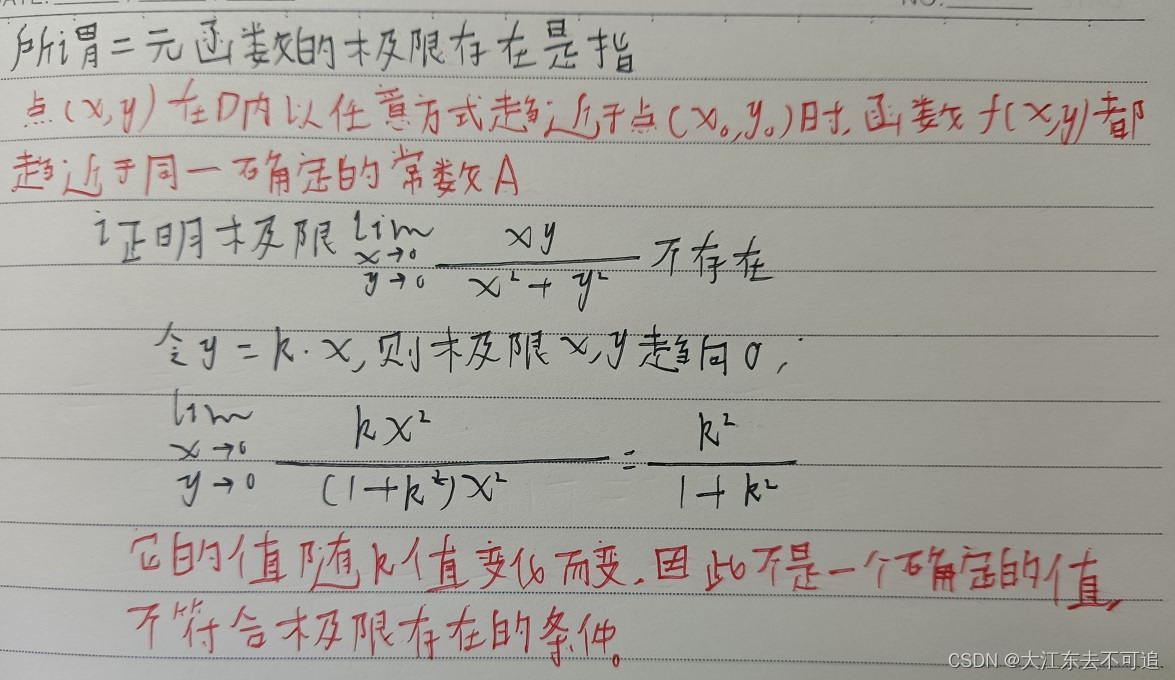 DATE: NO.
所谓二元函数的极限存在是指
点(x,y)在D内以任意方式趋近于点(x₀,y₀)时,函数f(x,y)都
趋近于同一确定的常数A
证明极限 lim x→0 y→0 xy / x²+y² 不存在
令y=k·x,则极限x,y趋向0,
lim x→0 y→0 kx² / (1+k²)x² = k² / 1+k²
它的值随k值变化而变,因此不是一个确定的值,
不符合极限存在的条件。
CSDN @大江东去不可追